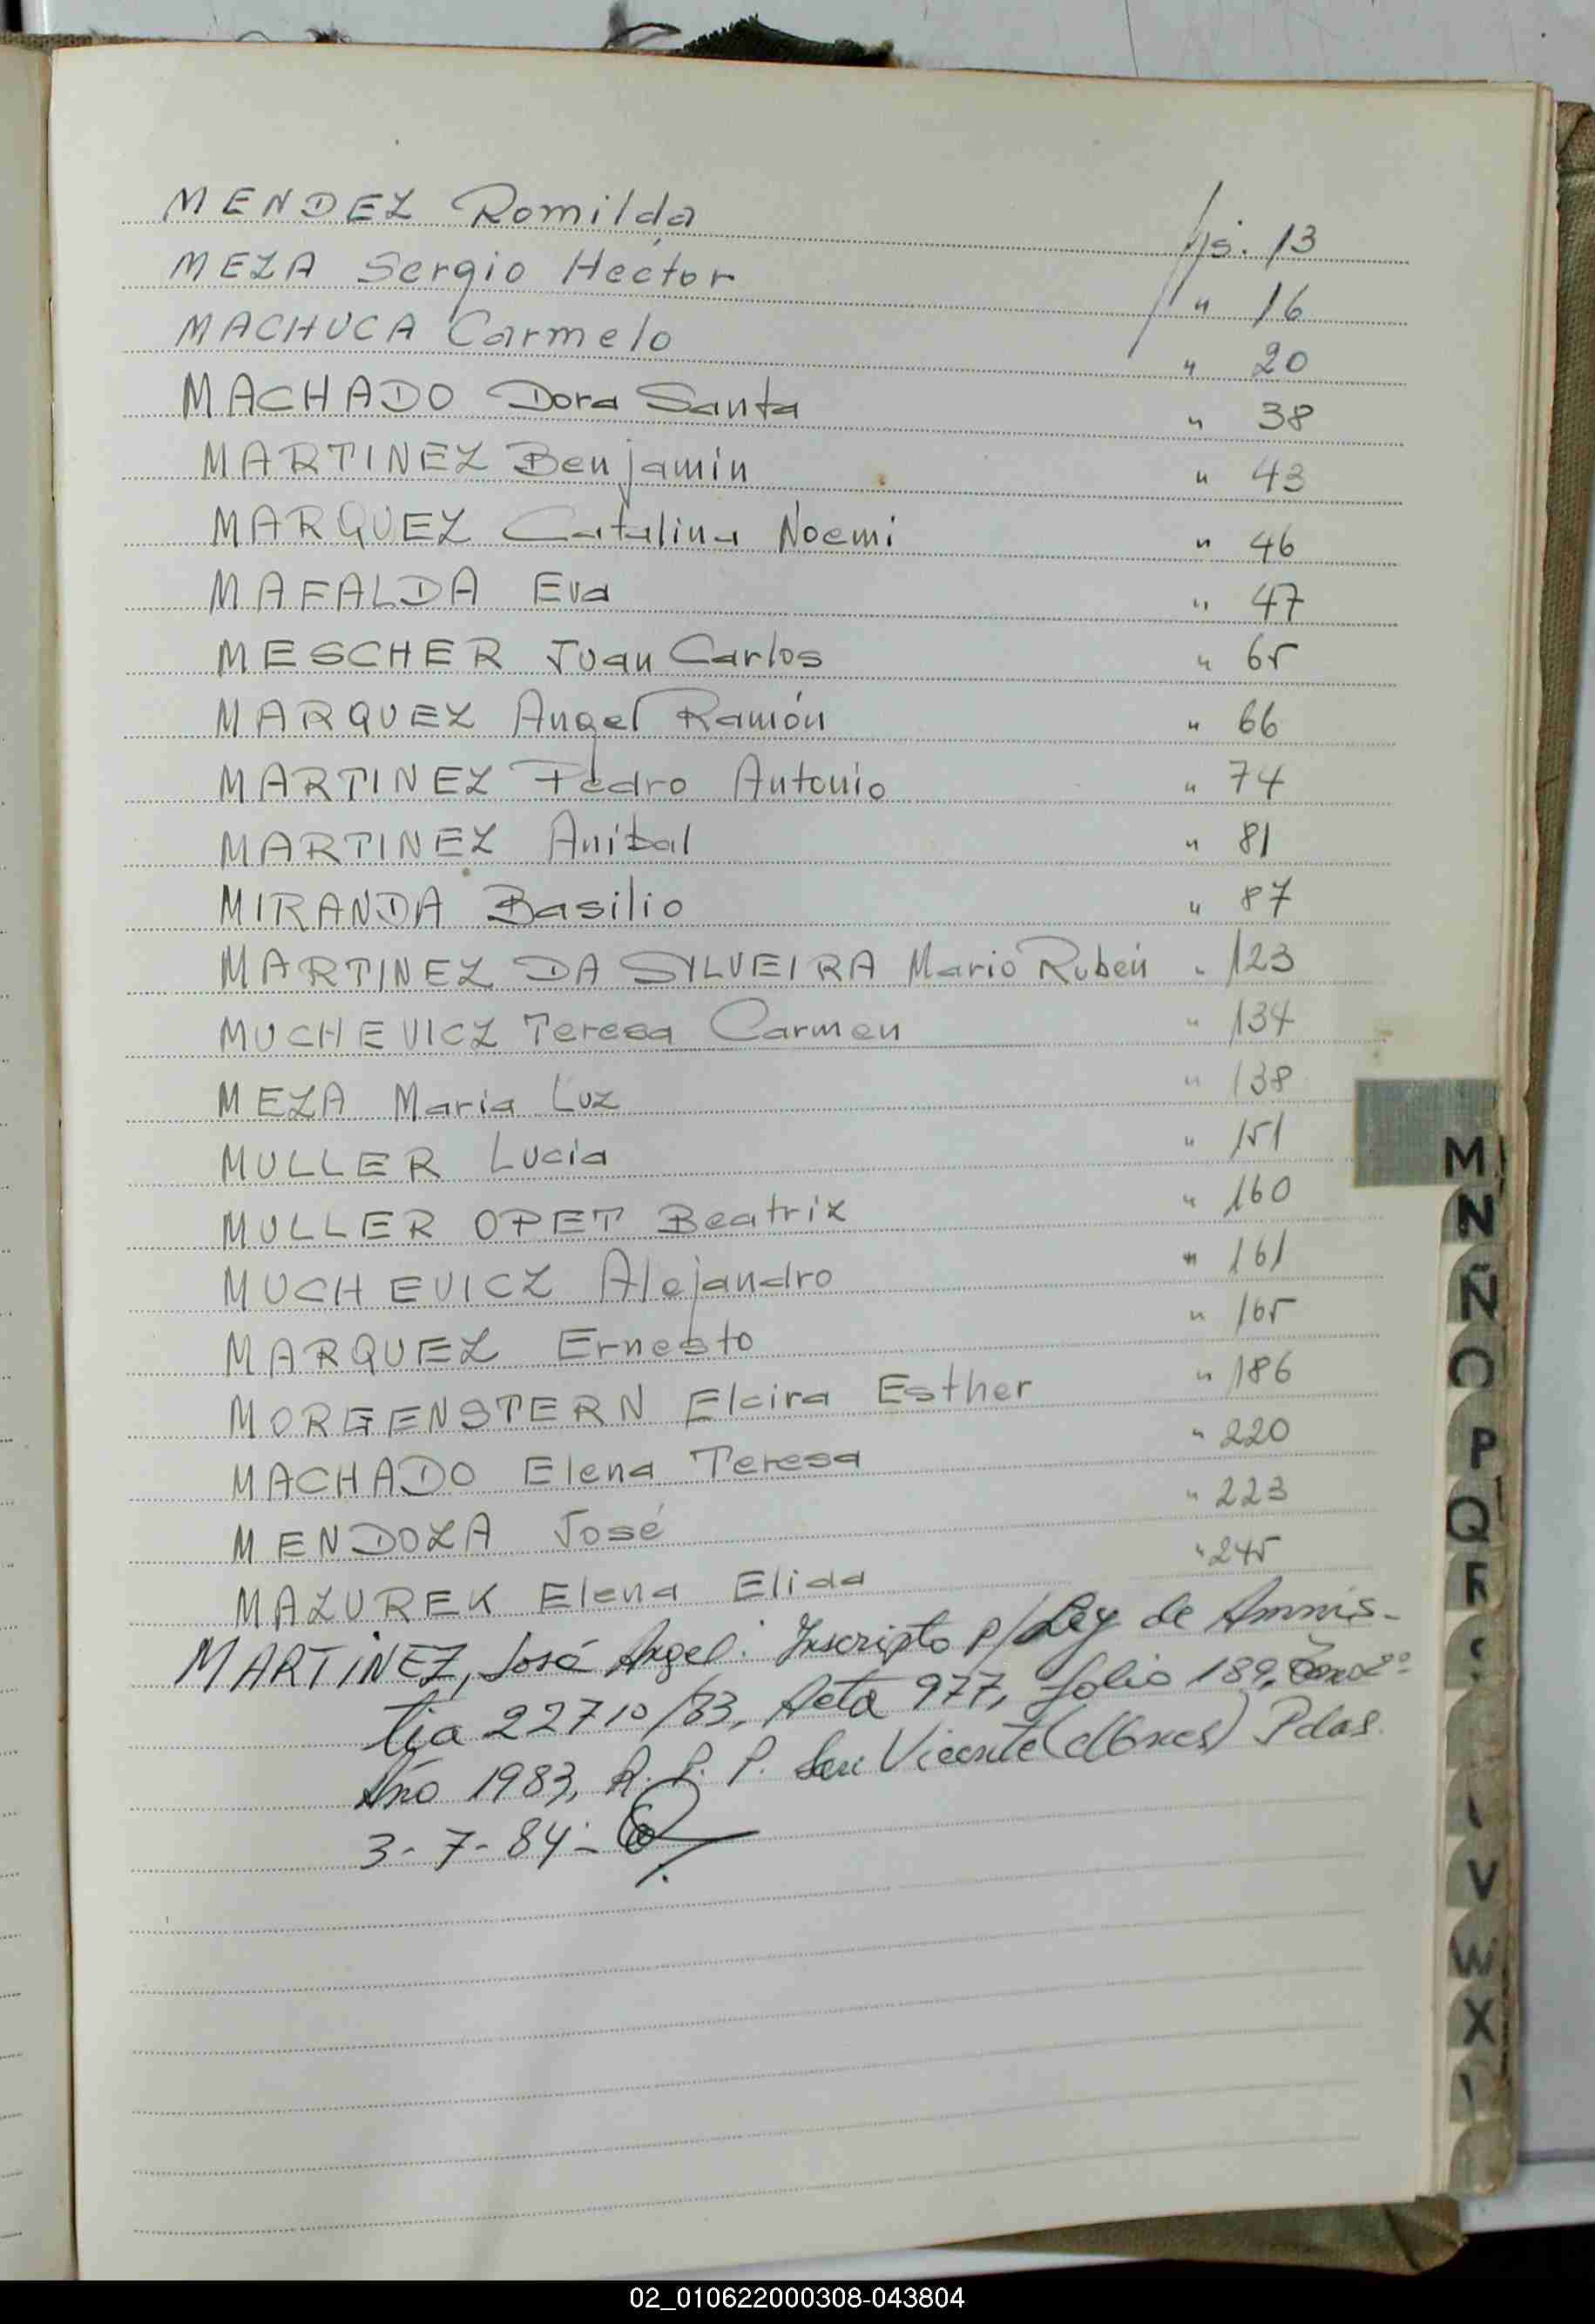 MENDEZ Romilda fjs. 13
MEZA Sergio Hector " 16
MACHUCA Carmelo " 20
MACHADO Dora Santa " 38
MARTINEZ Benjamin " 43
MARQUEZ Catalina Noemi " 46
MAFALDA Eva " 47
MESCHER Juan Carlos " 65
MARQUEZ Angel Ramón " 66
MARTINEZ Pedro Antonio " 74
MARTINEZ Anibal " 81
MIRANDA Basilio " 87
MARTINEZ DA SYLVEIRA Mario Rubén " 123
MUCHEVICZ Teresa Carmen " 134
MEZA Maria Luz " 138
MULLER Lucia " 151
MULLER OPET Beatriz " 160
MUCHEVICZ Alejandro " 161
MARQUEZ Ernesto " 165
MORGENSTERN Elcira Esther " 186
MACHADO Elena Teresa " 220
MENDOZA José " 223
MAZUREK Elena Elida " 245
MARTINEZ, José Angel: Inscripto p/Ley de Amnis-
tia 22710/83, Acta 977, folio 189, Tomo 2º
Año 1983, R. P. P. San Vicente Pdas.
3-7-84.-
M
N
Ñ
O
P
Q
R
V
W
X
02_010622000308-043804